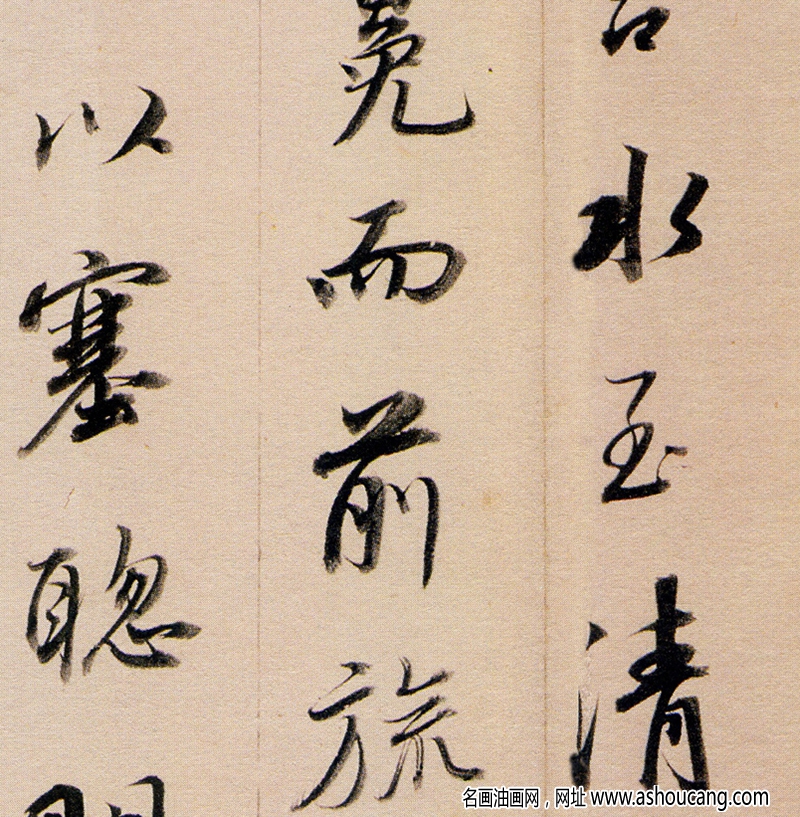 水至清
冕而前旒
以塞聰
名画油画网，网址 www.ashoucang.com